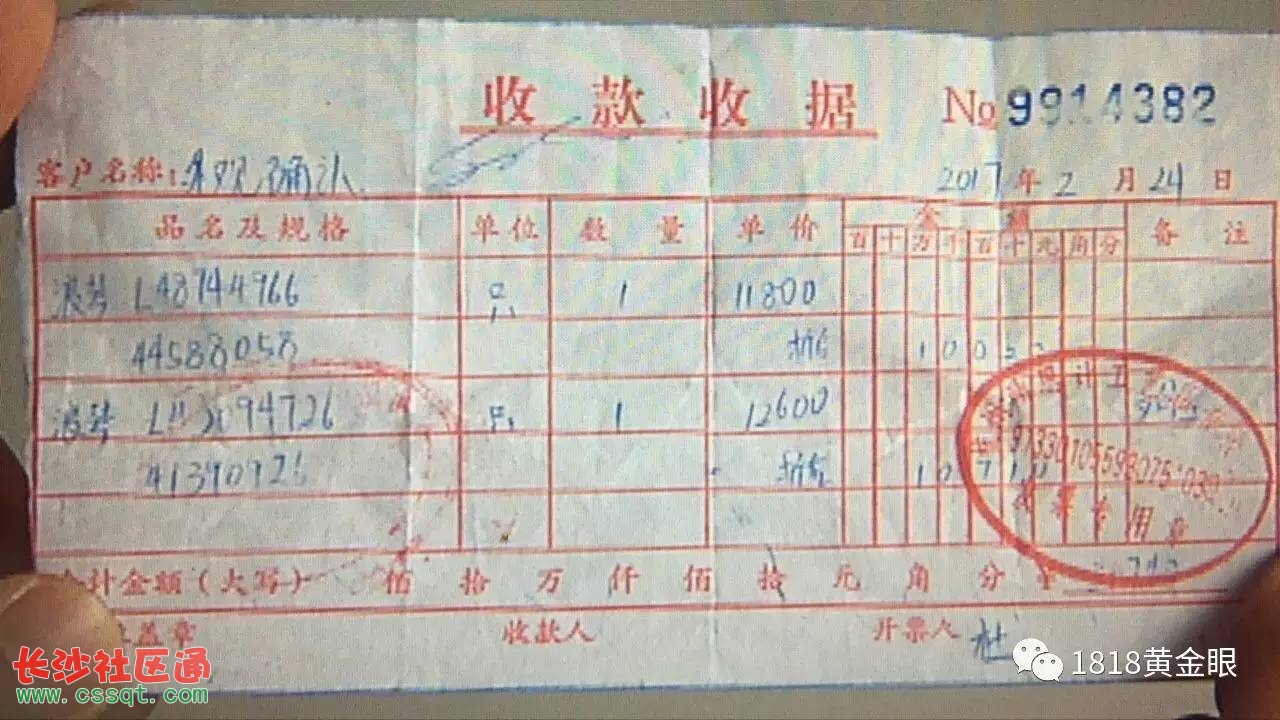 收款收据 No 9914382
客户名称: 外观确认 2017年2月24日
品名及规格 单位 数量 单价 金额 备注
百十万千百十元角分
浪琴 L48744966 只 1 11800
44588058 折后
浪琴 只 1 12600
41390926 折后
发票专用章
合计金额(大写) 佰 拾 万 仟 佰 拾 元 角 分 ¥
盖章 收款人 开票人 杜
长沙社区通
www.cssqt.com
1818黄金眼